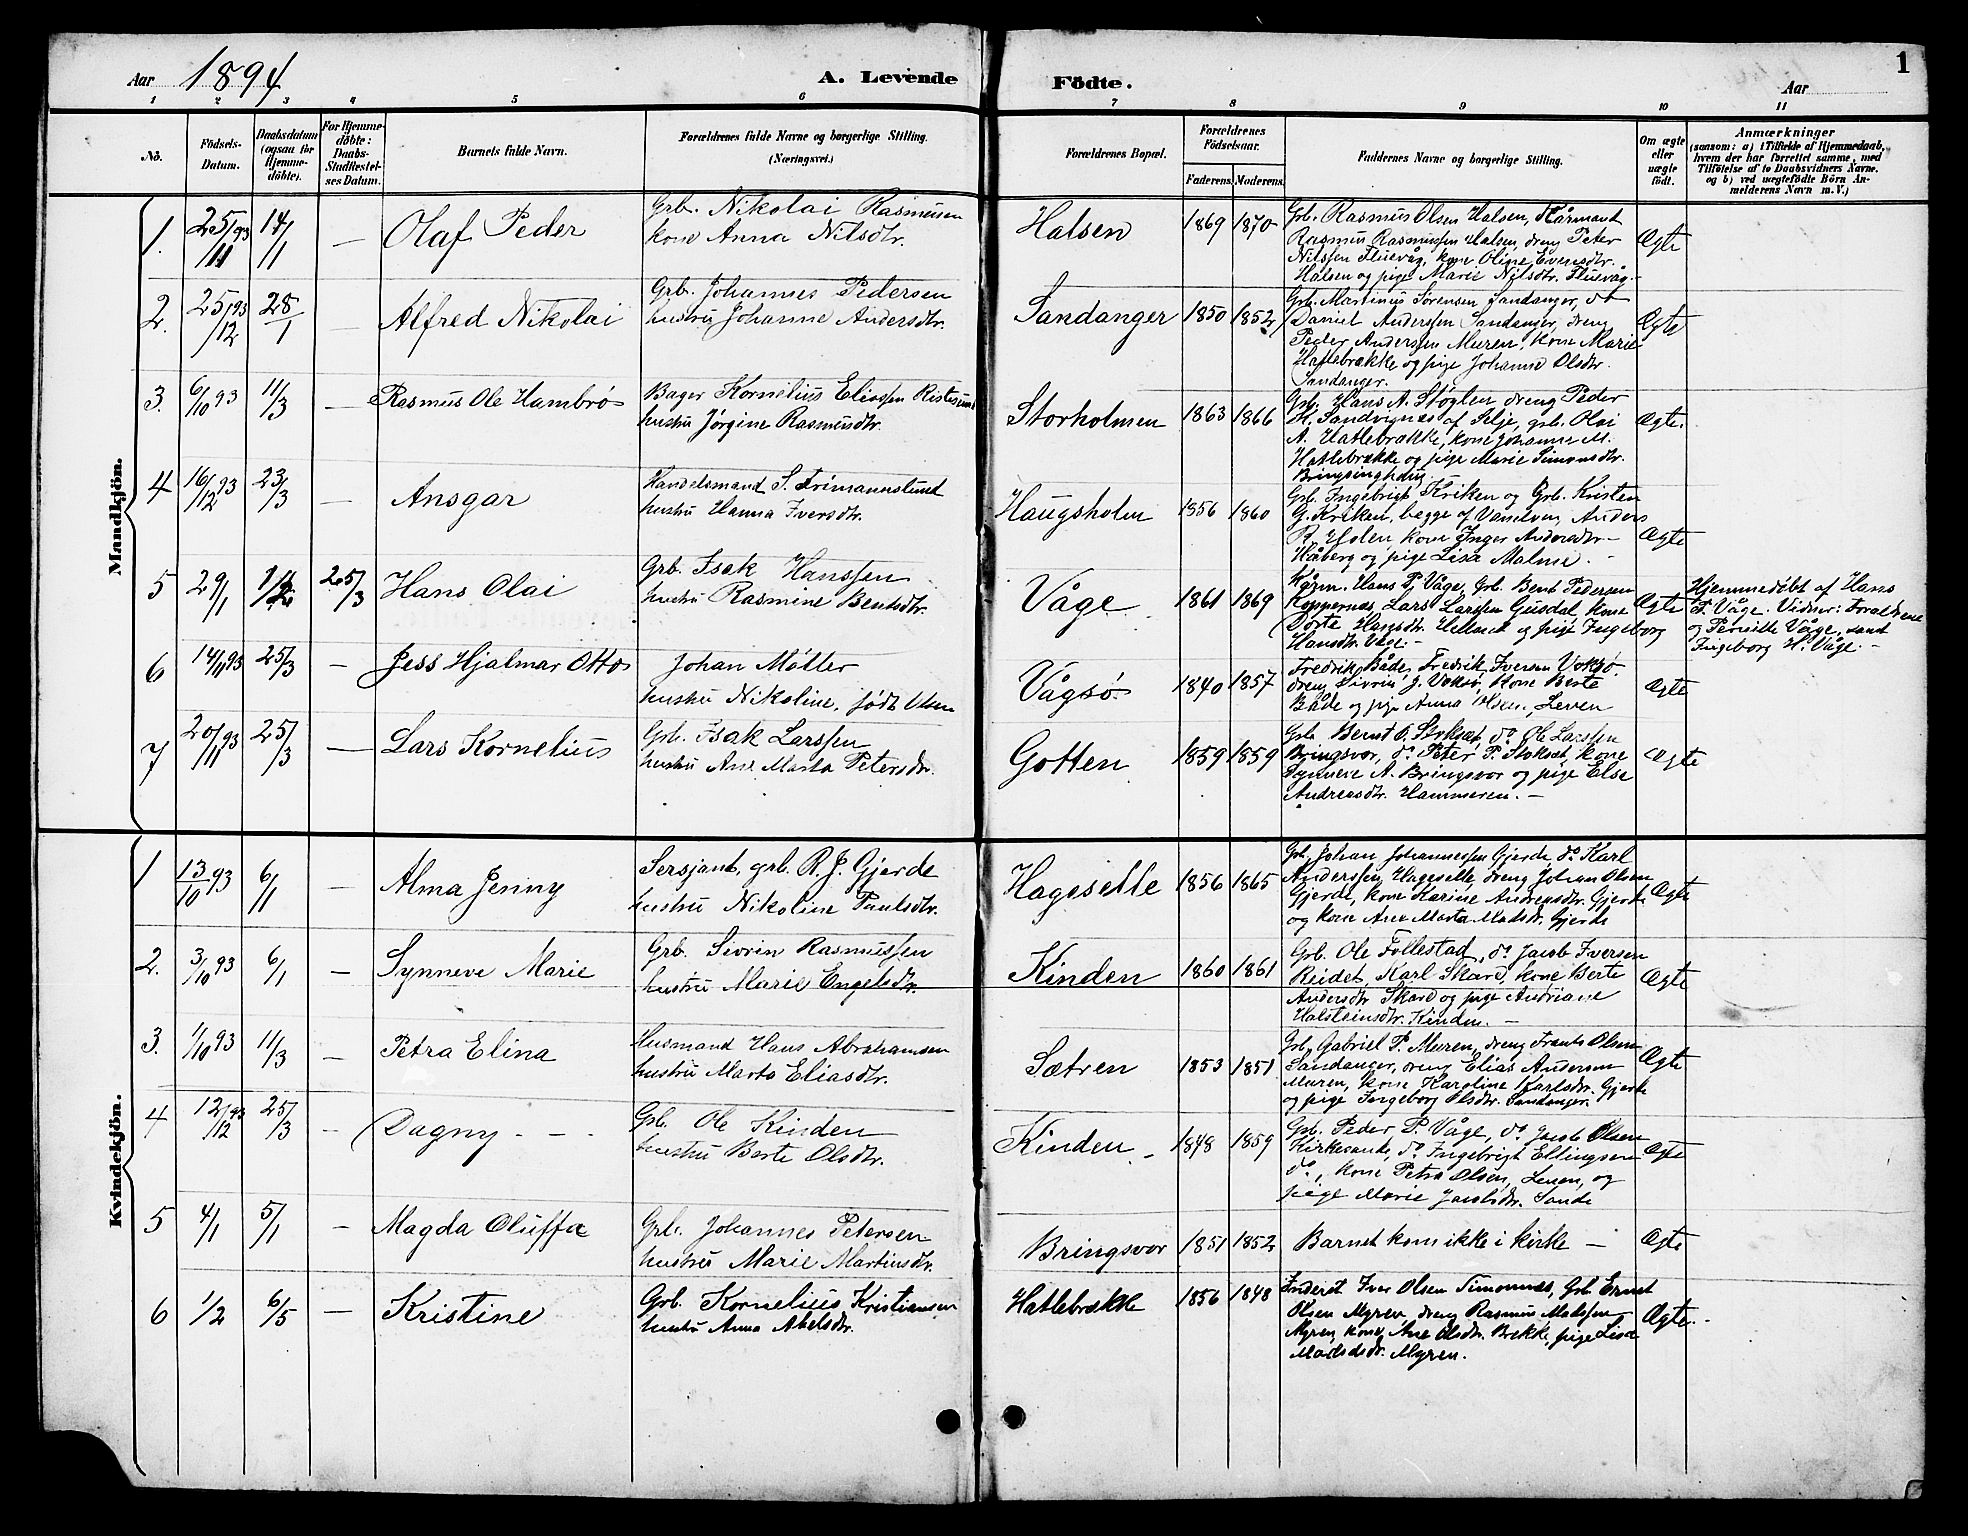 1
Aar 1894 A. Levende Födte. Aar
1 2 3 4 5 6 7 8 9 10 11
No.
Födsels-Datum.
Daabsdatum (ogsaa for Hjemme-döbte).
For Hjemme-döbte: Daabs-Stadfæstel-ses Datum.
Barnets fulde Navn.
Forældrenes fulde Navne og borgerlige Stilling.
(Næringsvei.)
Forældrenes Bopæl.
Forældrenes Födselsaar.
Faderens. Moderens.
Faddernes Navne og borgerlige Stilling.
Om ægte eller uægte födt.
Anmærkninger
(saasom: a) i Tilfælde af Hjemmedaab,
hvem der har forrettet samme, med
Tilföielse af to Daabsvidners Navne,
og b) ved uægtefödte Börn An-
melderens Navn m. V.)
Mandkjön.
1. 25/11 93 14/1 — Olaf Peder
Grb. Nikolai Rasmussen
kone Anna Nilsdtr.
Halsen 1869 1870
Grb. Rasmus Olsen Halsen, Kårmand
Rasmus Rasmussen Halsen, dreng Peter
Nilssen Fluevåg, kone Oline Evensdtr.
Halsen og pige Marie Nilsdtr. Fluevåg.
Ægte
2. 25/12 93 28/1 — Alfred Nikolai
Grb. Johannes Pedersen
hustru Johanne Andersdtr.
Sandanger 1850 1852
Grb. Martinus Sørensen Sandanger, do
Daniel Anderssen Sandanger, dreng
Peder Anderssen Muren, kone Marie
Hatlebrække og pige Johanne Olsdtr.
Sandanger.
Ægte
3. 6/10 93 11/3 — Rasmus Ole Hambrø
Bager Kornelius Eliassen
hustru Jørgine Rasmusdtr.
Storholmen 1863 1866
Grb. Hans A. Støylen dreng Peder
H. Sandvignæs af Selje, grb. Olai
A. Hatlebrække, kone Johanne M.
Hatlebrække og pige Marie Simonsdtr.
Ægte.
4 16/12 93 23/3 — Ansgar
Handelsmand S.
hustru Hanna Iversdtr.
Haugsholm 1856 1860
Grb. Ingebrigt Kriken og Grb. Kristen
G. Kriken, begge af Vanelven, Anders
R. Holen kone Inger Andersdtr.
Håberg og pige Lisa Malene —
Ægte
5 29/1 1/2 25/3 Hans Olai
Grb. Isak Hanssen
hustru Rasmine Bentsdtr.
Våge 1861 1869
Kårm. Hans P. Våge, Grb. Bent Pedersen
Koppernæs, Lars Larssen Gusdal, kone
Dorte Hansdtr. og pige Ingeborg
Hansdtr. Våge. —
Ægte
Hjemmedøbt af Hans
P. Våge. Vidner: Forældrene
og Pernille Våge, samt
Ingeborg H. Våge. —
6 14/11 93 25/3 — Jess Hjalmar Otto
Johan Møller
hustru Nikoline, født Olsen
Vågsø 1840 1857
Fredrik Både, Fredrik Iversen Voksø
dreng Sivrin J. Voksø, kone Berte
Både og pige Anna Olsen, Leven
Ægte
7 20/11 93 25/3 — Lars Kornelius
Grb. Isak Larssen
hustru Ane Marta Petersdtr.
Gotten 1859 1859
Grb. Bernt O. Stoksæt, do Ole Larssen
Bringsvor, do Peter P. Stoksæt, kone
Synneve A. Bringsvor og pige Else
Andreasdtr. Hammeren. —
Ægte
Kvindekjön.
1 13/10 93 6/1 — Alma Jenny
Sersjant, grb. R. J. Gjerde
hustru Nikoline Paulsdtr.
Hageselle 1856 1865
Grb. Johan Johannessen Gjerde, do Karl
Anderssen Hageselle, dreng Johan Olsen
Gjerde, kone Karine Andreasdtr. Gjerde
og kone Ane Marta Madsdtr. Gjerde
Ægte
2. 3/10 93 6/1 — Synneve Marie
Grb. Sivrin Rasmussen
hustru Marie Engelsdtr.
Kinden 1860 1861
Grb. Ole Follestad, do Jacob Iversen
Reidet, Karl Skare, kone Berte
Andersdtr Skare og pige Andriane
Halsteinsdtr. Kinden. —
Ægte
3. 1/10 93 11/3 — Petra Elina
Husmand Hans Abrahamsen
hustru Marta Eliasdtr.
Sætren 1853 1851
Grb. Gabriel P. Muren, dreng Frants Olsen
Sandanger, dreng Elias Andersen
Muren, kone Karoline Karlsdtr. Gjerde
og pige Ingeborg Olsdtr. Sandanger.
Ægte
4 12/12 93 25/3 — Dagny - -
Grb. Ole Kinden
hustru Berte Olsdtr.
Kinden 1848 1859
Grb. Peder P. Våge, do Jacob Olsen
Kirkesande, do Ingebrigt Ellingsen
do, kone Petra Olsen, Leven, og
pige Marie Jacobsdtr. Sande
Ægte
5 4/1 5/1 — Magda Oluffa
Grb. Johannes Petersen
hustru Marie Martinsdtr.
Bringsvor 1851 1852
Barnet kom ikke i kirke —
Ægte
6 1/2 6/5 — Kristine
Grb. Kornelius Kristiansen
hustru Anna Abelsdtr.
Hatlebrække 1856 1848
Inderst Iver Olsen Simonnæs, Grb. Ernst
Olsen Myren, dreng Rasmus Madssen
Myren, kone Ane Olsdtr. Brekke, pige Lisa
Madsdtr. Myren.
Ægte.